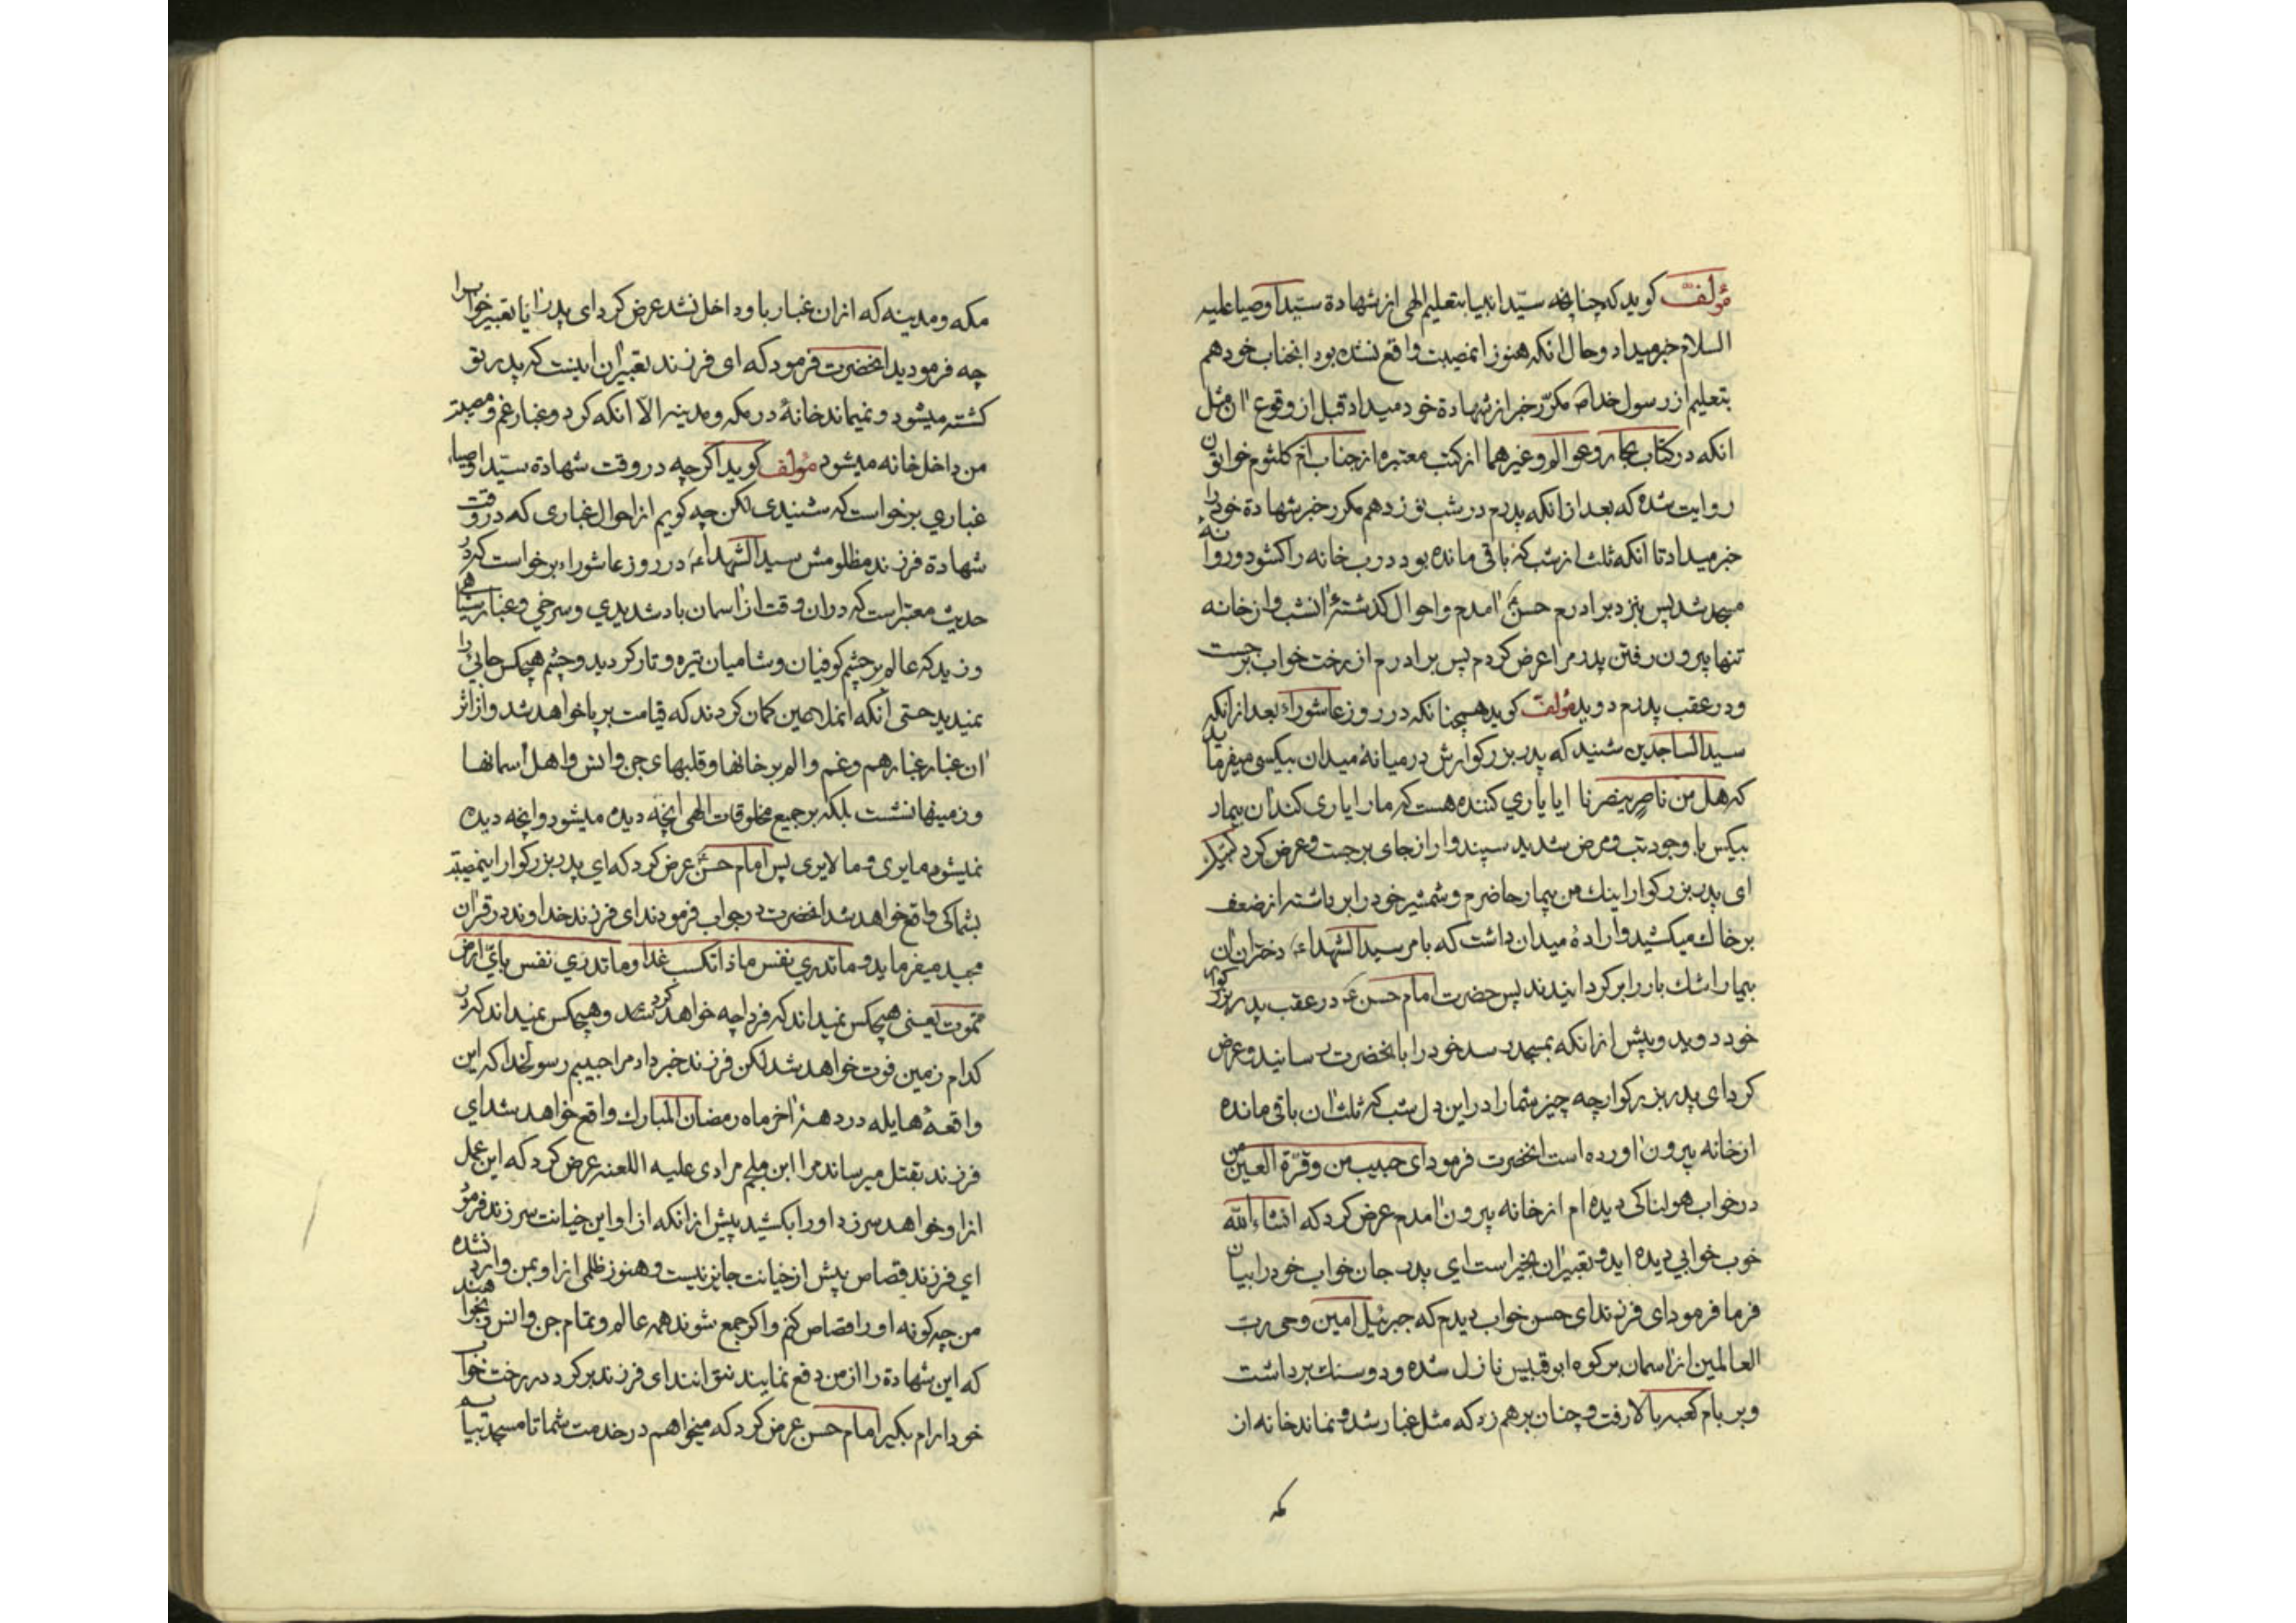 مؤلف کوید که چنانچه سیّد انبیا بتعلیم الهی از شهادة سیّد اوصیا علیه
السلام خبر میداد و حال انکه هنوز انمصیبت واقع نشده بود انجناب خود هم
بتعلیم از رسول خدا ص مکرّر خبر از شهادة خود میداد قبل از وقوع ان مثل
انکه در کتاب بحار و عوالم و غیرهما از کتب معتبره از جناب امّ کلثوم خواتون
روایت شده که بعد از انکه پدرم در شب نوزدهم مکرر خبر شهادة خود را
خبر میداد تا انکه ثلث از شب که باقی مانده بود درب خانه را کشود و روانهٔ
مسجد شد پس بنزد برادرم حسن ع امدم و احوال کذشتهٔ انشب و از خانه
تنها بیرون رفتن پدرم را عرض کردم پس برادرم از رخت خواب برجست
و در عقب پدرم دوید مؤلف کوید همچنانکه در روز عاشوراء بعد از انکه
سید الساجدین شنید که پدر بزرکوارش در میانهٔ میدان بیکسی میفرماید
که هل من ناصر ینصرنا ایا یاری کننده هست که ما را یاری کند ان بیمار
بیکس با وجود تب و مرض شدید سپندوار از جای برجست و عرض کرد لبیک
ای پدر بزرکوار اینك من بیمار حاضرم و شمشیر خود را برداشته از ضعف
بر خاك میکشید و ارادهٔ میدان داشت که بامر سید الشهداء ع دختران ان
بیمار اشك بار را برکردانیدند پس حضرت امام حسن ع در عقب پدر بزرکوار
خود دوید و پیش از انکه بمسجد رسد خود را بانحضرت رسانید و عرض
کرد ای پدر بزرکوار چه چیز شما را در این دل شب که ثلث ان باقی مانده
از خانه بیرون اورده است انحضرت فرمود ای حبیب من و قرّة العین من
در خواب هولناکی دیده ام از خانه بیرون امدم عرض کرد که انشاء الله
خوب خوابی دیده اید و تعبیر ان بخیر است ای پدر جان خواب خود را بیان
فرما فرمود ای فرزند ای حسن خواب دیدم که جبرئیل امین وحی ربّ
العالمین از اسمان بر کوه ابوقبیس نازل شده و دو سنك برداشت
و بر بام کعبه بالا رفت و چنان بر هم زد که مثل غبار شد و نماند خانه از
مکه
مکه و مدینه که از ان غبار باو داخل نشد عرض کرد ای پدر ایا تعبیر خواب را
چه فرمودید انحضرت فرمود که ای فرزند تعبیر ان اینست که پدر تو
کشته میشود و نمیماند خانهٔ در مکه و مدینه الا انکه کرد و غبار غم و مصیبت
من داخل خانه میشود مؤلف کوید اکرچه در وقت شهادة سیّد اوصیاء
غباری برخواست که شنیدی لکن چه کویم از احوال غباری که در وقت
شهادة فرزند مظلومش سید الشهداء ع در روز عاشوراء برخواست که در
حدیث معتبر است که در ان وقت از اسمان باد شدیدی و سرخی و غبار سیاهی
وزید که عالم بر چشم کوفیان و شامیان تیره و تار کردید و چشم هیچکس جائی را
نمیدید حتی انکه انملاعین کمان کردند که قیامت برپا خواهد شد و از اثر
ان غبار غبار هم و غم و الم بر خانها و قلبهای جن و انس و اهل اسمانها
و زمینها نشست بلکه بر جمیع مخلوقات الهی انچه دیده میشود و انچه دیده
نمیشود ما یری و ما لا یری پس امام حسن ع عرض کرد که ای پدر بزرکوار اینمصیبت
بشما کی واقع خواهد شد انحضرت در جواب فرمودند ای فرزند خداوند در قران
مجید میفرماید و ما تدری نفس ما ذا تکسب غدا و ما تدری نفس بایّ ارض
تموت یعنی هیچکس نمیداند که فردا چه خواهد کرد و هیچکس نمیداند که در
کدام زمین فوت خواهد شد لکن فرزند خبر داد مرا حبیبم رسولخدا که این
واقعهٔ هایله در دههٔ اخر ماه رمضان المبارك واقع خواهد شد ای
فرزند بقتل میرساند مرا ابن ملجم مرادی علیه اللعنه عرض کرد که این عمل
از او خواهد سر زد او را بکشید پیش از انکه از او این خیانت سر زند فرمود
ای فرزند قصاص پیش از خیانت جایز نیست و هنوز ظلمی از او بمن وارد نشده
من چکونه او را قصاص کنم و اکر جمع شوند همه عالم و تمام جن و انس و بخواهند
که این شهادة را از من دفع نمایند نتوانند ای فرزند برکرد در رخت خواب
خود ارام بکیر امام حسن عرض کرد که میخواهم در خدمت شما تا مسجد بیایم